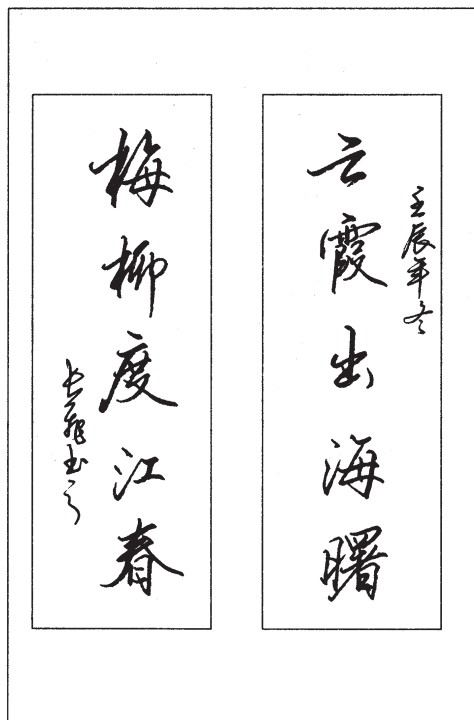 壬辰年冬
云霞出海曙
梅柳度江春